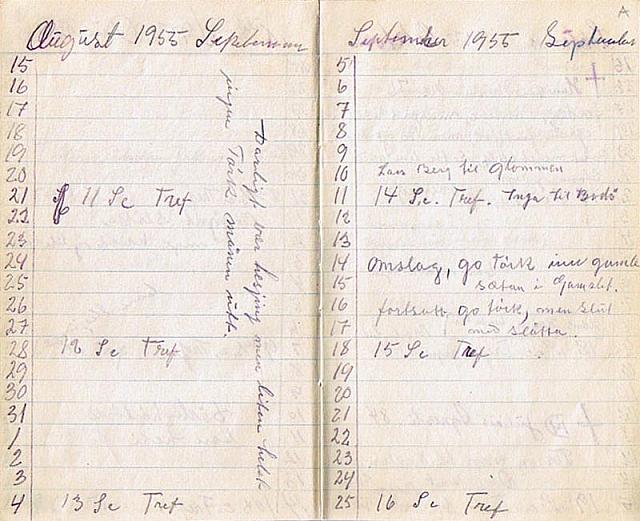 August 1955 September
15
16
17
18
19
20
21 11 Se Tref
22
23
24
25
26
27
28 12 Se Tref
29
30
31
1
2
3
4 13 Se Tref
Dårligt vær hesjing men liten
ingen Tørk månen utt.
September 1955 September
A
5
6
7
8
9
10 Lars Berg til Glommen
11 14 Se. Tref. Inga til Bodø
12
13
14 Omslag, go tørk inn gamle
15 sætan i Gamslt.
16 fortsatt go tørk, men slut
17 med slåtta.
18 15 Se Tref
19
20
21
22
23
24
25 16 Se Tref